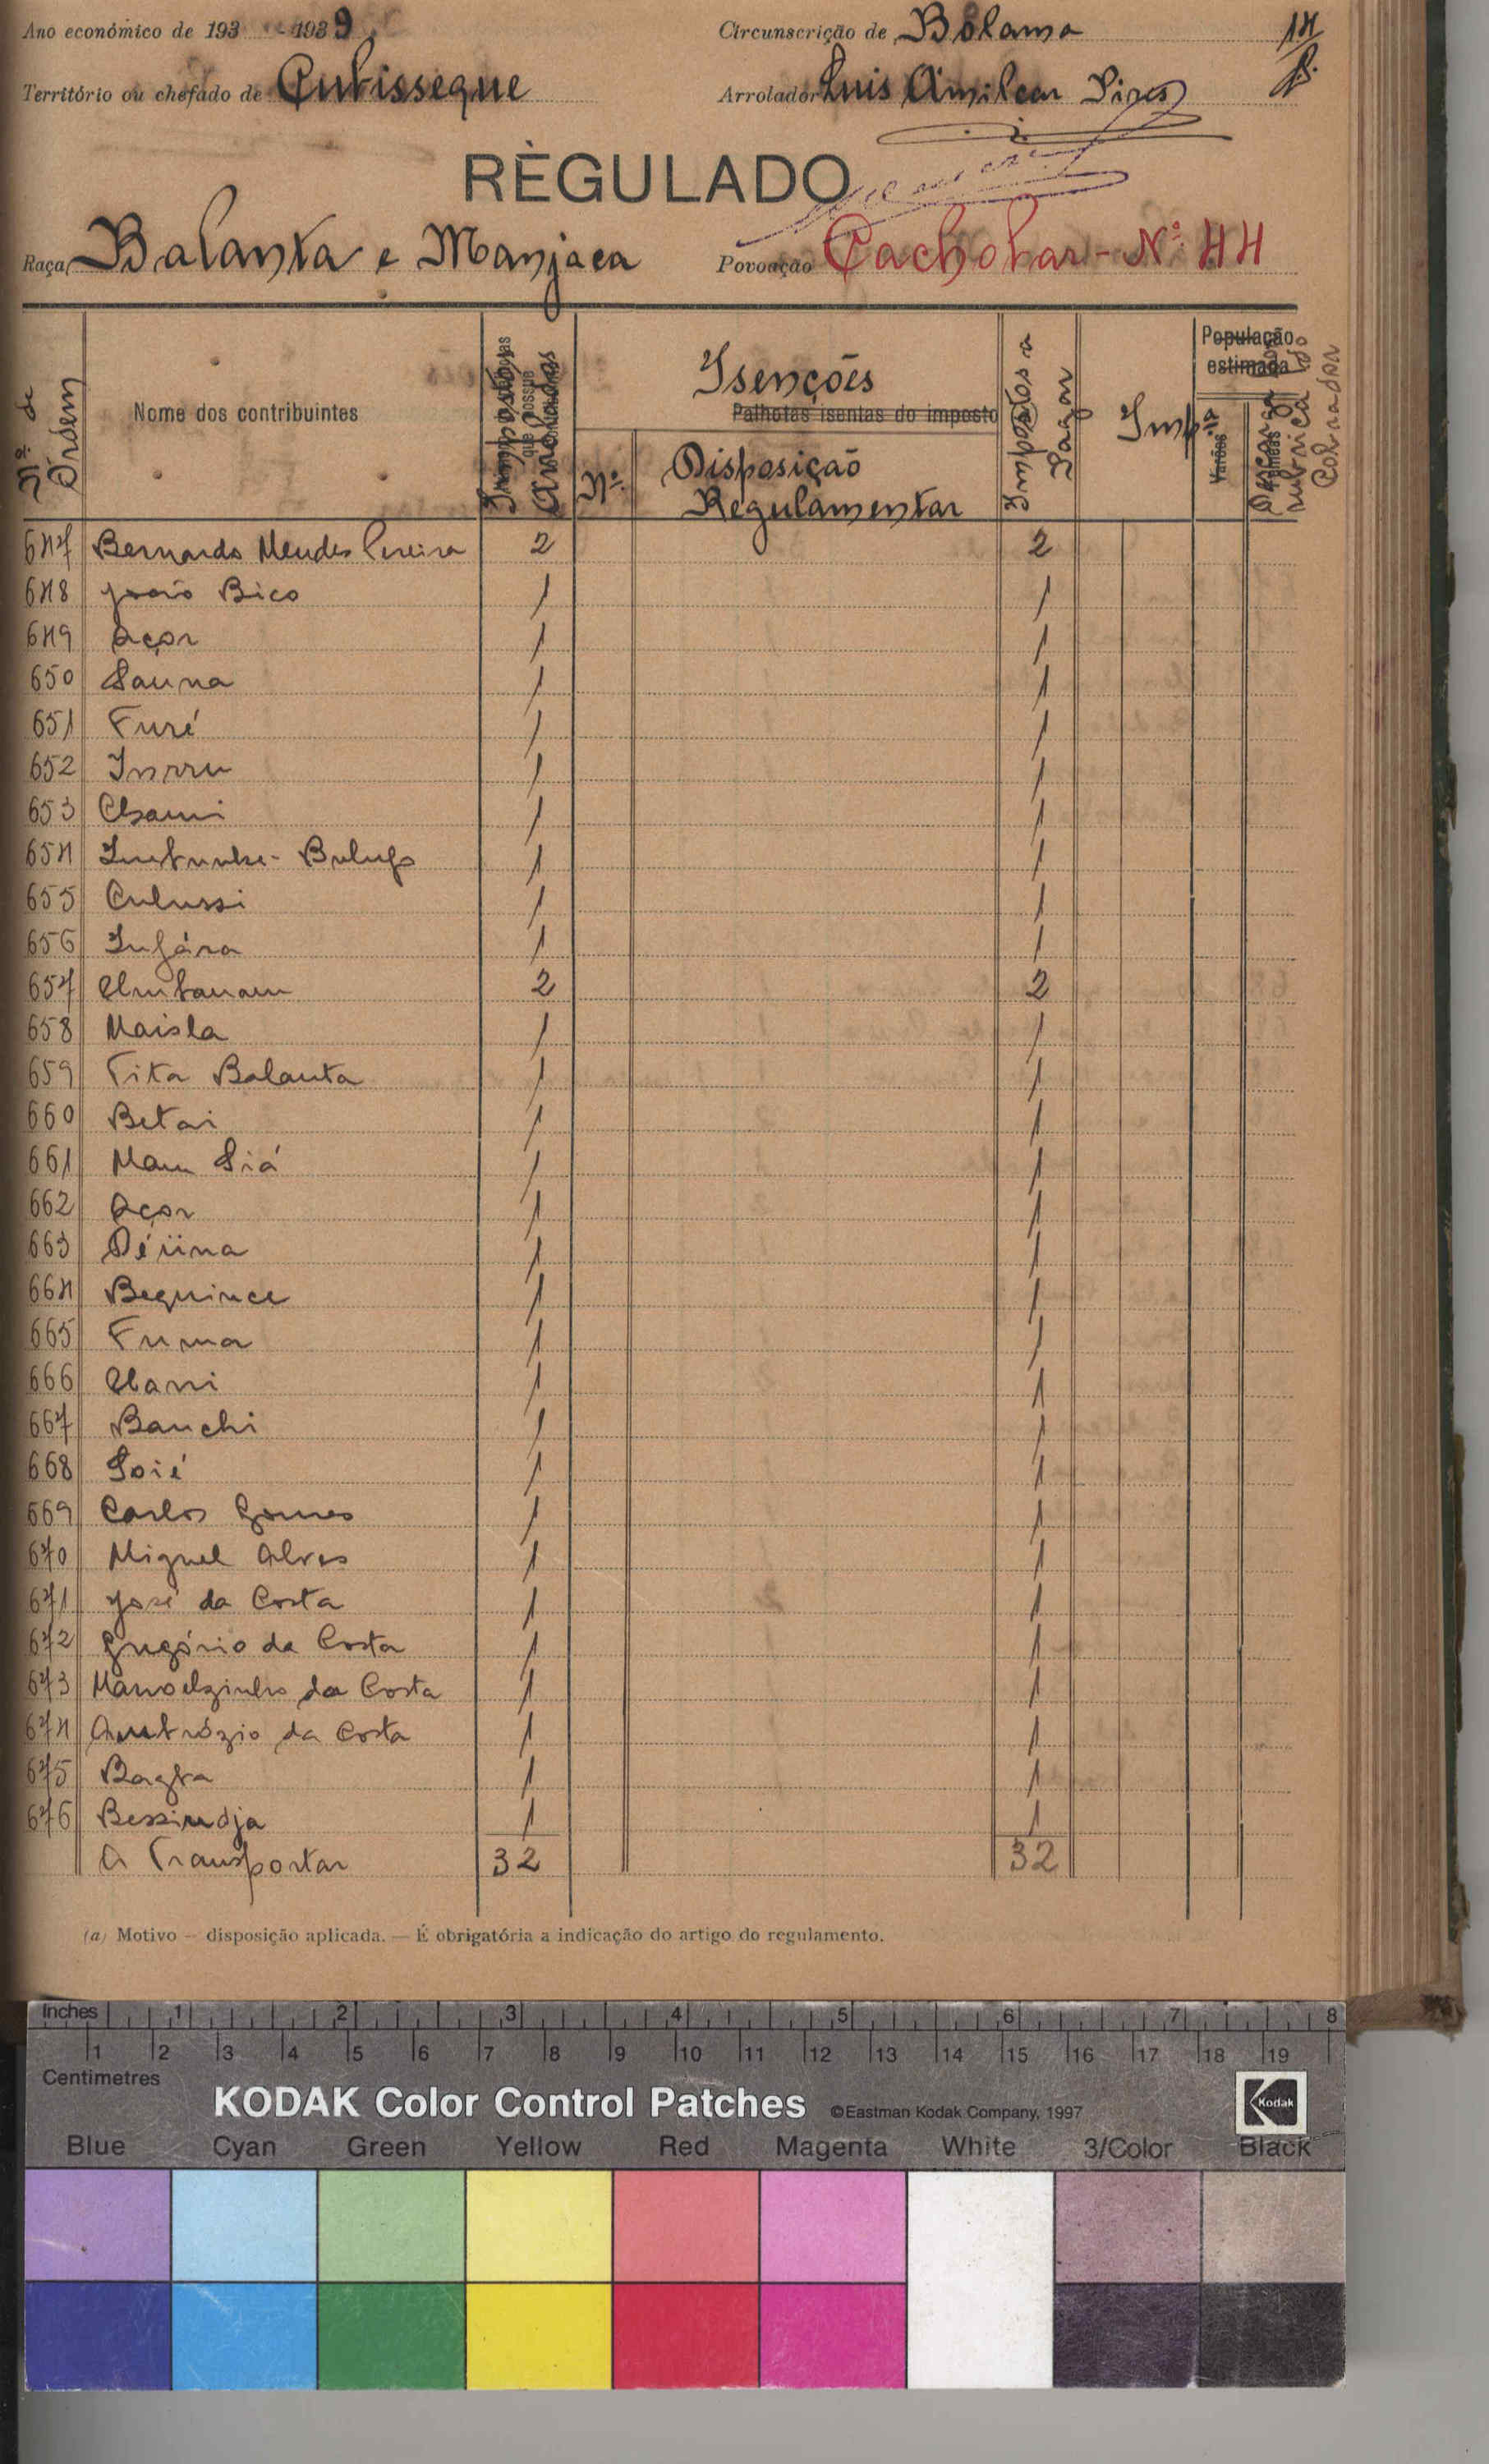 Ano económico de 193 -1939
Circunscrição de Bolama
14
Território ou chefado de Cubisseque
Arrolador Luis Amilcar Pires
RÈGULADO
Raça Balanta e Manjaca
Povoação Cachobar - Nº 44
Nº de Ordem
Nome dos contribuintes
Impostos Arrolados
Isenções
Palhotas isentas do imposto
Nº
Disposição Regulamentar
Impostos a Pagar
Imp.
População estimada
Varões
rubrica do Cobrador
647 Bernardo Mendes Pereira 2 2
648 João Bico 1 1
649 Açor 1 1
650 Sauna 1 1
651 Furé 1 1
652 1 1
653 1 1
654 1 1
655 Culussi 1 1
656 Infára 1 1
657 2 2
658 Maisla 1 1
659 Tita Balanta 1 1
660 Betai 1 1
661 Mam Siá 1 1
662 Açor 1 1
663 1 1
664 Bequince 1 1
665 Fuma 1 1
666 1 1
667 Banchi 1 1
668 Soié 1 1
669 Carlos Gomes 1 1
670 Miguel Alves 1 1
671 José da Costa 1 1
672 Gregório da Costa 1 1
673 Manoelzinho da Costa 1 1
674 Ambrózio da Costa 1 1
675 Bagba 1 1
676 Bessindja 1 1
A Transportar 32 32
(a) Motivo — disposição aplicada. — É obrigatória a indicação do artigo do regulamento.
Inches 1 2 3 4 5 6 7 8
1 2 3 4 5 6 7 8 9 10 11 12 13 14 15 16 17 18 19
Centimetres
KODAK Color Control Patches ©Eastman Kodak Company, 1997 Kodak
Blue Cyan Green Yellow Red Magenta White 3/Color Black